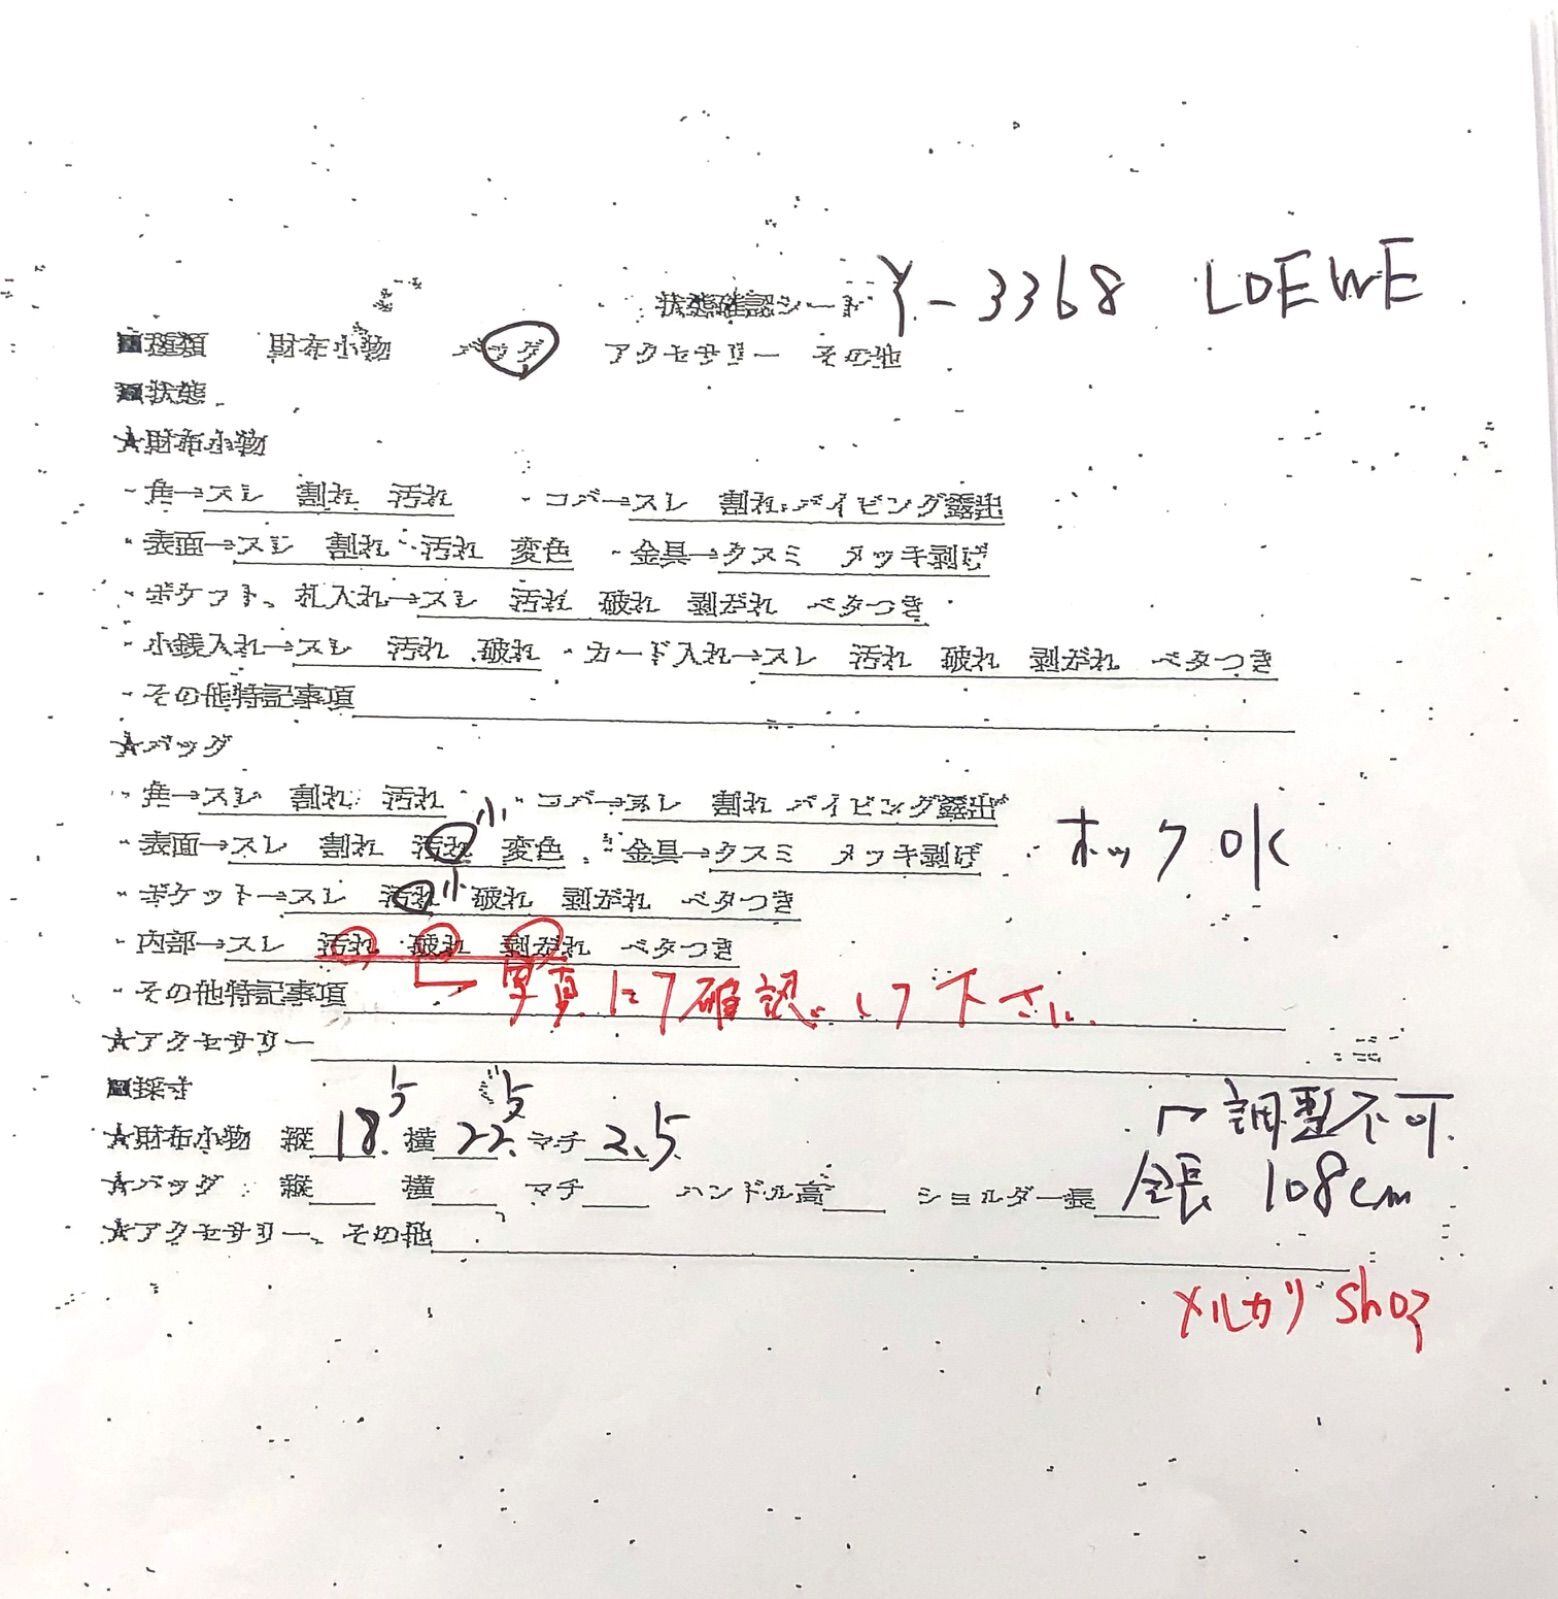 状態確認シート Y-3368 LOEWE
■種類 財布小物 バッグ アクセサリー その他
■状態
★財布小物
・角→スレ 割れ 汚れ ・コバ→スレ 割れ パイピング露出
・表面→スレ 割れ 汚れ 変色 ・金具→クスミ メッキ剥げ
・ポケット、札入れ→スレ 汚れ 破れ 剥がれ ベタつき
・小銭入れ→スレ 汚れ 破れ ・カード入れ→スレ 汚れ 破れ 剥がれ ベタつき
・その他特記事項
★バッグ
・角→スレ 割れ 汚れ ・コバ→スレ 割れ パイピング露出
・表面→スレ 割れ 汚れ 小 変色 ・金具→クスミ メッキ剥げ ホック OK
・ポケット→スレ 汚れ 小 破れ 剥がれ ベタつき
・内部→スレ 汚れ 破れ 剥がれ ベタつき
・その他特記事項 写真にて確認して下さい
★アクセサリー
■採寸
★財布小物 縦 18.5 横 22.5 マチ 2.5 調整不可
★バッグ 縦 横 マチ ハンドル高 ショルダー長 全長 108cm
★アクセサリー、その他
メルカリ shop